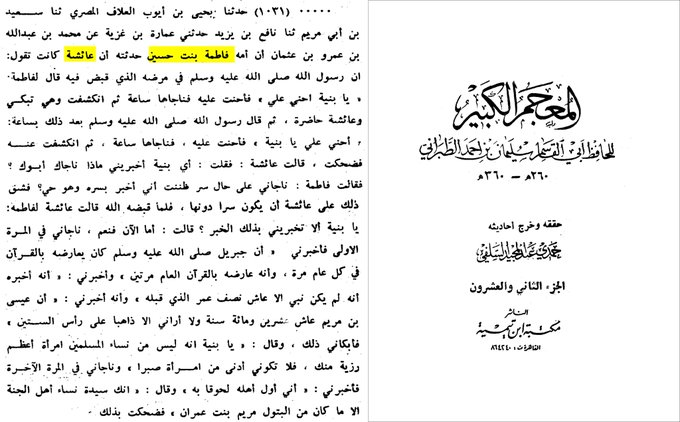 (١٠٣١) حدثنا يحيى بن أيوب العلاف المصري ثنا سعيد
بن أبي مريم ثنا نافع بن يزيد حدثني عمارة بن غزية عن محمد بن عبدالله
بن عمرو بن عثمان أن أمه فاطمة بنت حسين حدثته أن عائشة كانت تقول:
ان رسول الله صلى الله عليه وسلم في مرضه الذي قبض فيه قال لفاطمة:
« يا بنية احني علي » فأحنت عليه فناجاها ساعة ثم انكشفت وهي تبكي
وعائشة حاضرة ، ثم قال رسول الله صلى الله عليه وسلم بعد ذلك بساعة:
« أحني علي يا بنية » فأحنت عليه ، فناجاها ساعة ، ثم انكشفت عنه
فضحكت ، قالت عائشة : فقلت : أي بنية أخبريني ماذا ناجاك أبوك ؟
فقالت فاطمة : ناجاني على حال سر ظننت أني أخبر بسره وهو حي؟ فشق
ذلك على عائشة أن يكون سرا دونها ، فلما قبضه الله قالت عائشة لفاطمة:
يا بنية ألا تخبريني بذلك الخبر ؟ قالت : أما الآن فنعم ، ناجاني في المرة
الاولى فأخبرني « أن جبريل صلى الله عليه وسلم كان يعارضه بالقرآن
في كل عام مرة ، وأنه عارضه بالقرآن العام مرتين » وأخبرني : « أنه أخبره
أنه لم يكن نبي الا عاش نصف عمر الذي قبله » وأنه أخبرني : « أن عيسى
بن مريم عاش عشرين ومائة سنة ولا أراني الا ذاهبا على رأس الستين »
فأبكاني ذلك ، وقال : « يا بنية انه ليس من نساء المسلمين امرأة أعظم
رزية منك ، فلا تكوني أدنى من امرأة صبرا » وناجاني في المرة الآخرة
فأخبرني : « أني أول أهله لحوقا به » وقال : « انك سيدة نساء أهل الجنة
الا ما كان من البتول مريم بنت عمران » فضحكت بذلك
المعجم الكبير
للحافظ أبي القاسم سليمان بن احمد الطبراني
٢٦٠هـ – ٣٦٠هـ
حققه وخرج أحاديثه
حمدي عبد المجيد السلفي
الجزء الثاني والعشرون
الناشر
مكتبة ابن تيمية
القاهرة ت : ٨٦٤٢٤٠